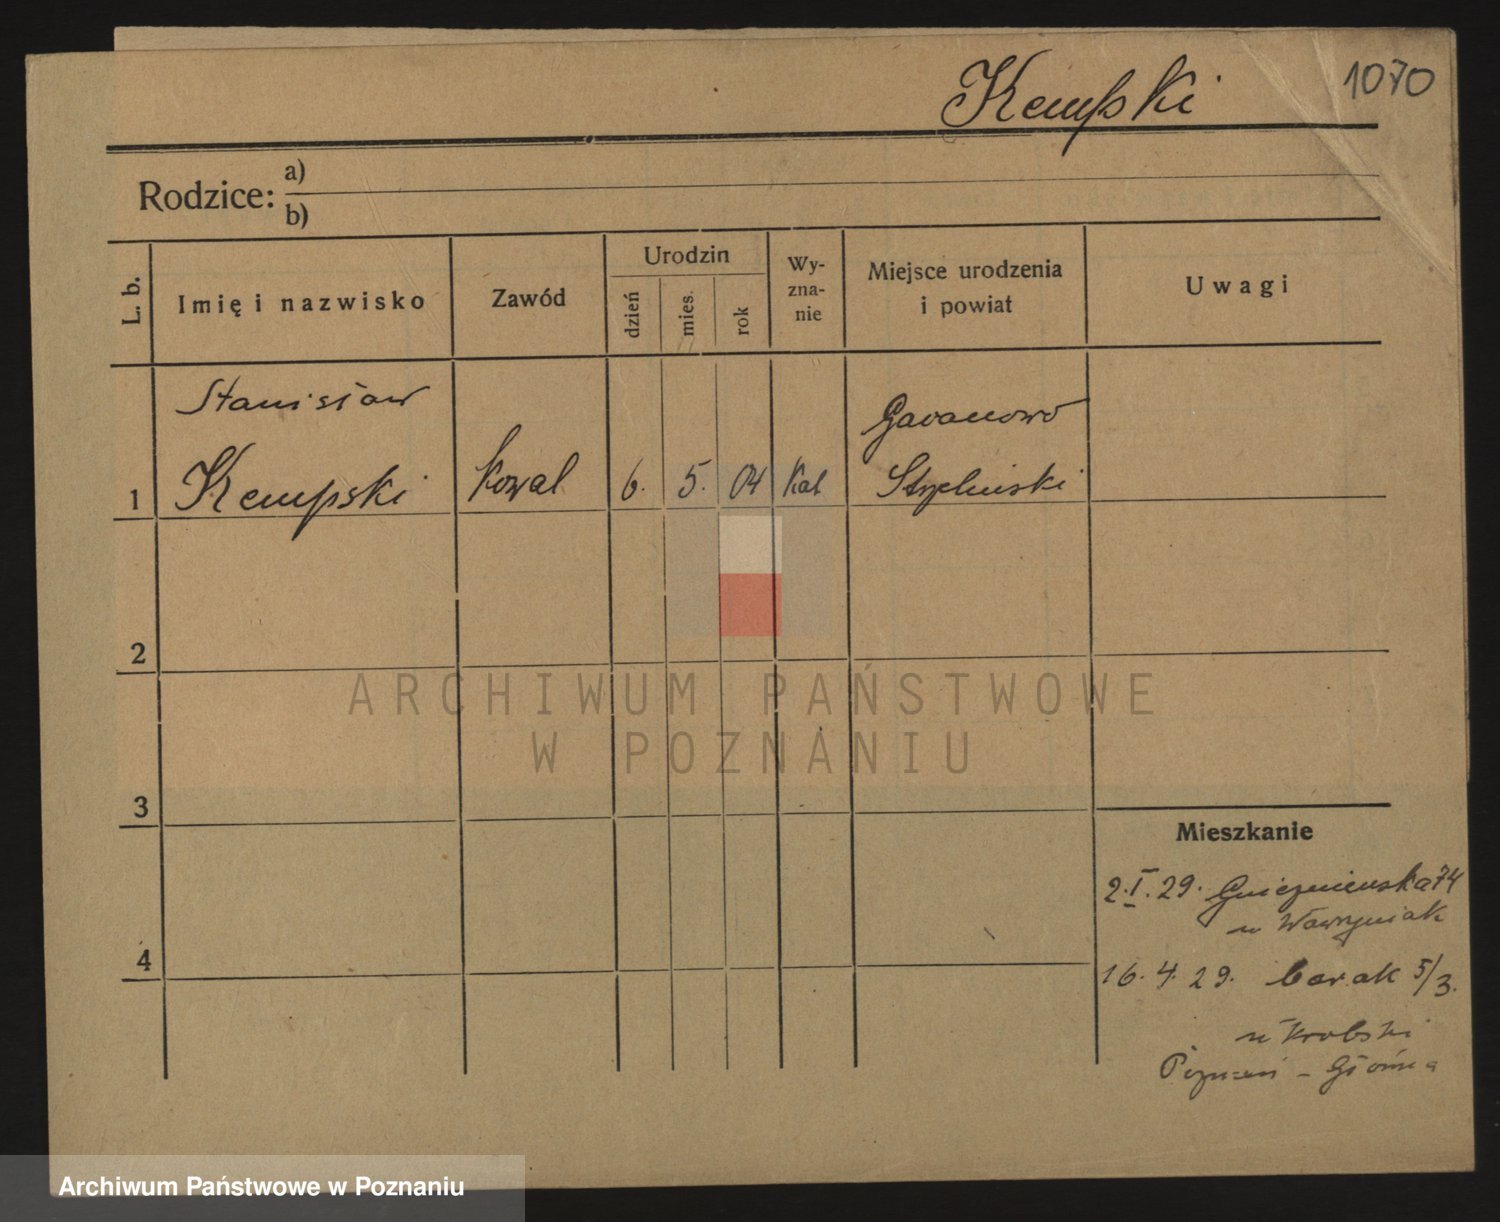 Kempski
1070
Rodzice: a)
b)
L. b.
Imię i nazwisko
Zawód
Urodzin
dzień
mies.
rok
Wy-
zna-
nie
Miejsce urodzenia
i powiat
Uwagi
Stanisław
Garanowo
1 Kempski kowal 6. 5. 04 kat Strzeliński
2
3
4
Mieszkanie
2.I.29. Gnieźnieńska 74
u Wawrzyniak
16.4.29. barak 5/3.
u Krobski
Poznań – Główna
ARCHIWUM PAŃSTWOWE
W POZNANIU
Archiwum Państwowe w Poznaniu